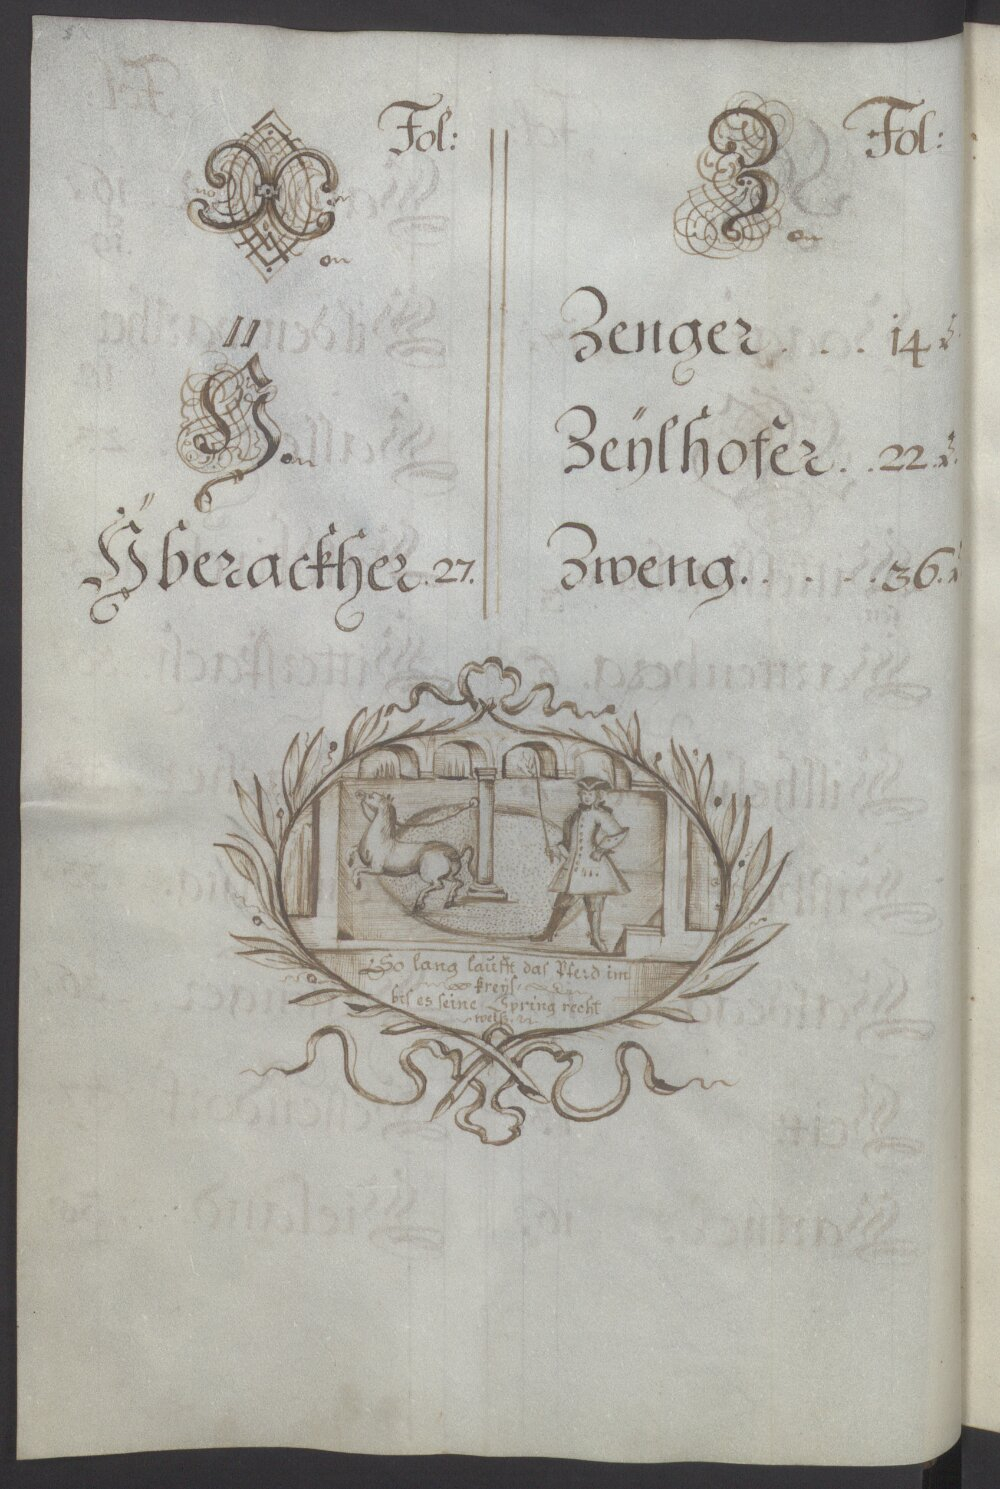 X Fol:
Ÿ
Ÿberackher. 27.
Z Fol:
Zenger . . . 14
Zeÿlhofer. . 22.
Zweng. . . . . 36.
So lang laufft das Pferd im
kreÿs.
bis es seine Spring recht
weiß.